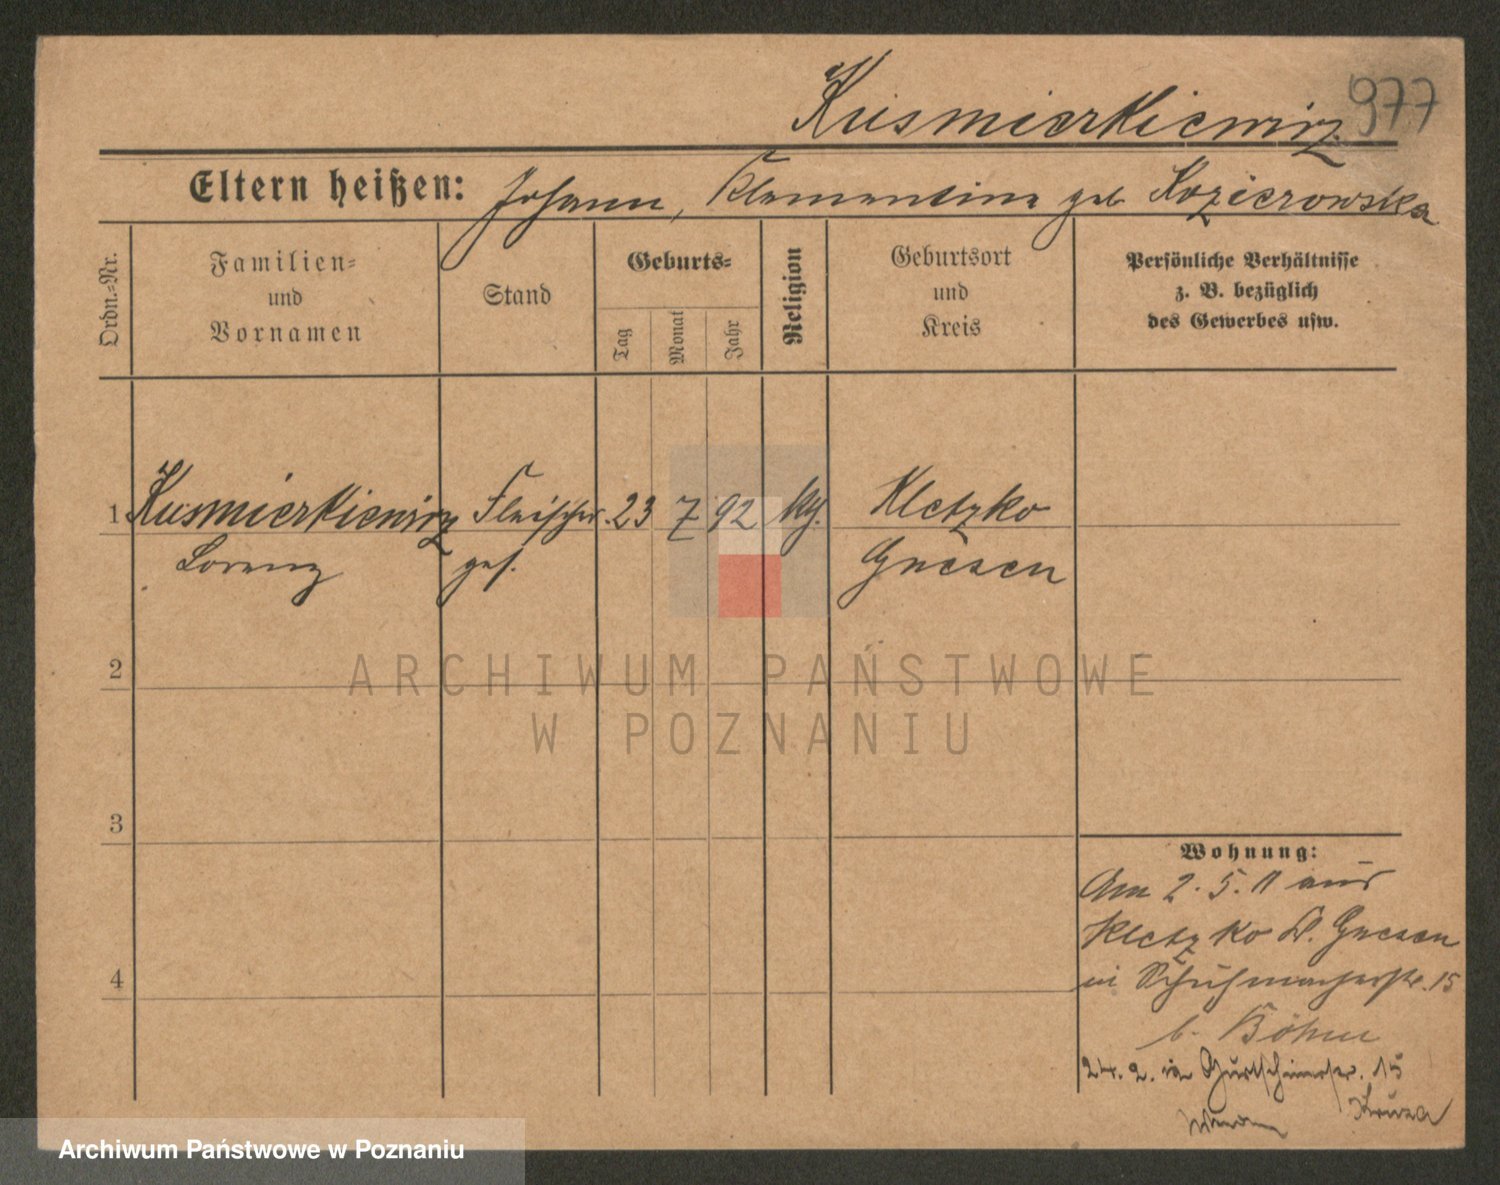 Kusmierkiewicz 977
Eltern heißen: Johann, Klementine geb Kozierowska
Ordn.=Nr.
Familien=
und
Vornamen
Stand
Geburts=
Tag
Monat
Jahr
Religion
Geburtsort
und
Kreis
Persönliche Verhältnisse
z. B. bezüglich
des Gewerbes usw.
1 Kusmierkiewicz Fleischer. 23 7 92 kth. Kletzko
Lorenz ges. Gnesen
2
ARCHIWUM PAŃSTWOWE
W POZNANIU
3
Wohnung:
Am 2. 5. 11 aus
Kletzko Kr. Gnesen
in Schuhmacherstr. 15
b. Böhm
4
24. 2. in Gurtschinerstr. 15
Archiwum Państwowe w Poznaniu